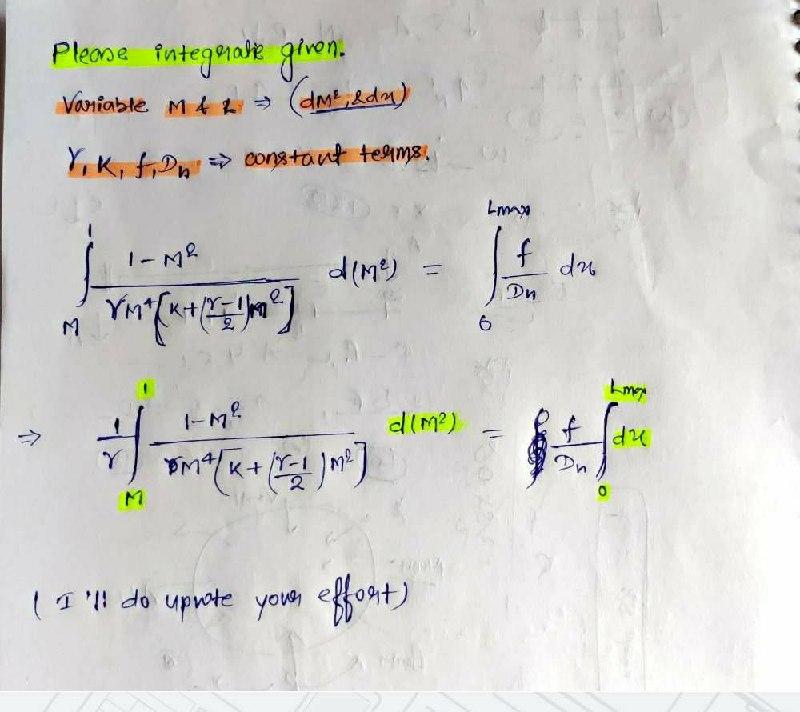 Please integrate given.
Variable M & x ⇒ (dM², & dx)
γ, K, f, Dn ⇒ constant terms.
∫_M^1 (1-M²)/(γM⁴[K+((γ-1)/2)M²]) d(M²) = ∫_0^Lmax f/Dn dx
⇒ 1/γ ∫_M^1 (1-M²)/(γM⁴[K+((γ-1)/2)M²]) d(M²) = f/Dn ∫_0^Lmax dx
(I'll do upvote your effort)